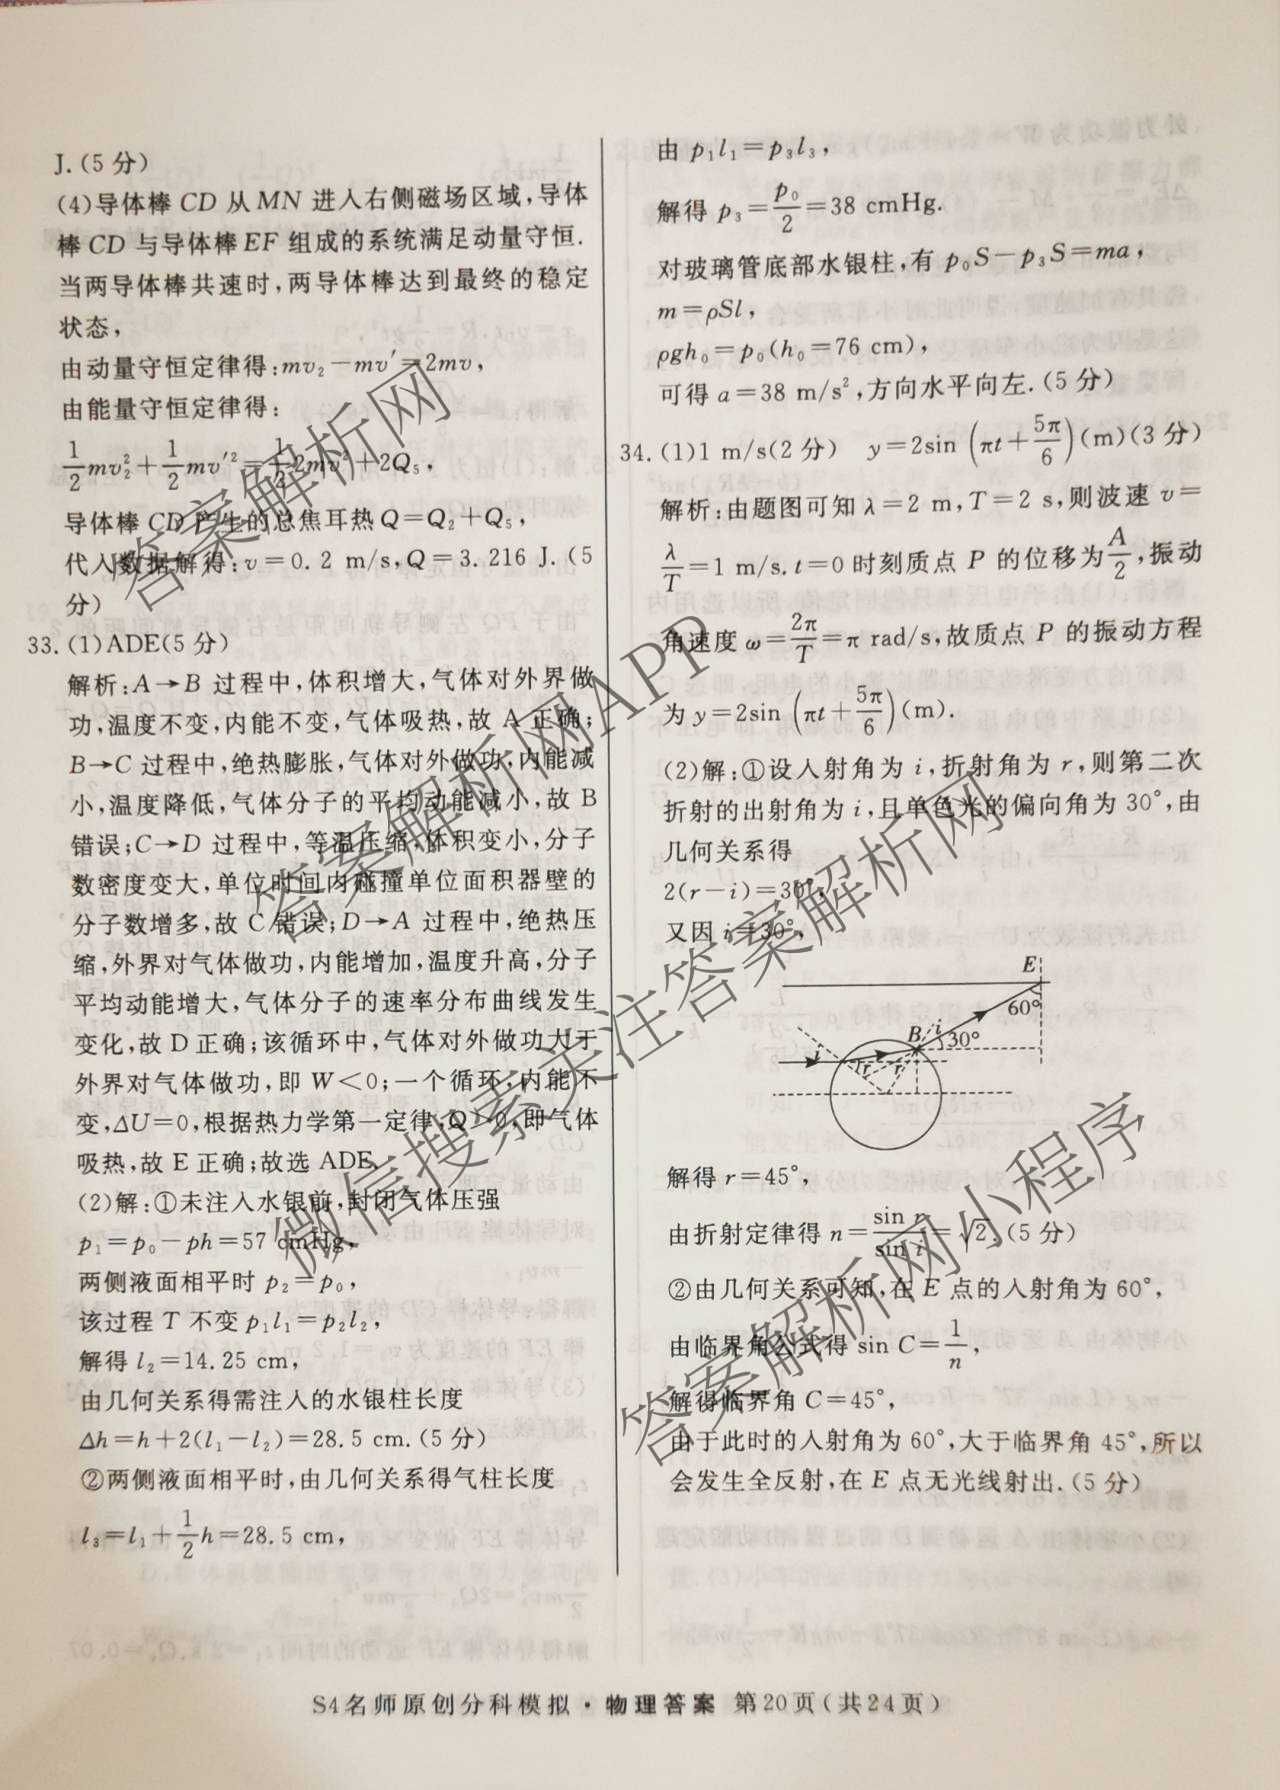 J.(5分)
(4)导体棒CD从MN进入右侧磁场区域,导体
棒CD与导体棒EF组成的系统满足动量守恒.
当两导体棒共速时,两导体棒达到最终的稳定
状态,
由动量守恒定律得:mv₂-mv′=2mv,
由能量守恒定律得:
1/2mv₂²+1/2mv′²=1/2·2mv²+2Q₅,
导体棒CD产生的总焦耳热Q=Q₂+Q₅,
代入数据解得:v=0.2 m/s,Q=3.216 J.(5
分)
33.(1)ADE(5分)
解析:A→B过程中,体积增大,气体对外界做
功,温度不变,内能不变,气体吸热,故A正确;
B→C过程中,绝热膨胀,气体对外做功,内能减
小,温度降低,气体分子的平均动能减小,故B
错误;C→D过程中,等温压缩,体积变小,分子
数密度变大,单位时间内碰撞单位面积器壁的
分子数增多,故C错误;D→A过程中,绝热压
缩,外界对气体做功,内能增加,温度升高,分子
平均动能增大,气体分子的速率分布曲线发生
变化,故D正确;该循环中,气体对外做功大于
外界对气体做功,即W<0;一个循环,内能不
变,ΔU=0,根据热力学第一定律,Q>0,即气体
吸热,故E正确;故选ADE.
(2)解:①未注入水银前,封闭气体压强
p₁=p₀-ph=57 cmHg,
两侧液面相平时p₂=p₀,
该过程T不变p₁l₁=p₂l₂,
解得l₂=14.25 cm,
由几何关系得需注入的水银柱长度
Δh=h+2(l₁-l₂)=28.5 cm.(5分)
②两侧液面相平时,由几何关系得气柱长度
l₃=l₁+1/2h=28.5 cm,
由p₁l₁=p₃l₃,
解得p₃=p₀/2=38 cmHg.
对玻璃管底部水银柱,有p₀S-p₃S=ma,
m=ρSl,
ρgh₀=p₀(h₀=76 cm),
可得a=38 m/s²,方向水平向左.(5分)
34.(1)1 m/s(2分) y=2sin(πt+5π/6)(m)(3分)
解析:由题图可知λ=2 m,T=2 s,则波速v=
λ/T=1 m/s.t=0时刻质点P的位移为A/2,振动
角速度ω=2π/T=π rad/s,故质点P的振动方程
为y=2sin(πt+5π/6)(m).
(2)解:①设入射角为i,折射角为r,则第二次
折射的出射角为i,且单色光的偏向角为30°,由
几何关系得
2(r-i)=30°,
又因i=30°,
E
60°
B
i
30°
i
r
r
解得r=45°,
由折射定律得n=sin r/sin i=√2.(5分)
②由几何关系可知,在E点的入射角为60°,
由临界角公式得sin C=1/n,
解得临界角C=45°,
由于此时的入射角为60°,大于临界角45°,所以
会发生全反射,在E点无光线射出.(5分)
S4名师原创分科模拟·物理答案 第20页(共24页)
答案解析网
答案解析网APP
微信搜索关注答案解析网
答案解析网小程序